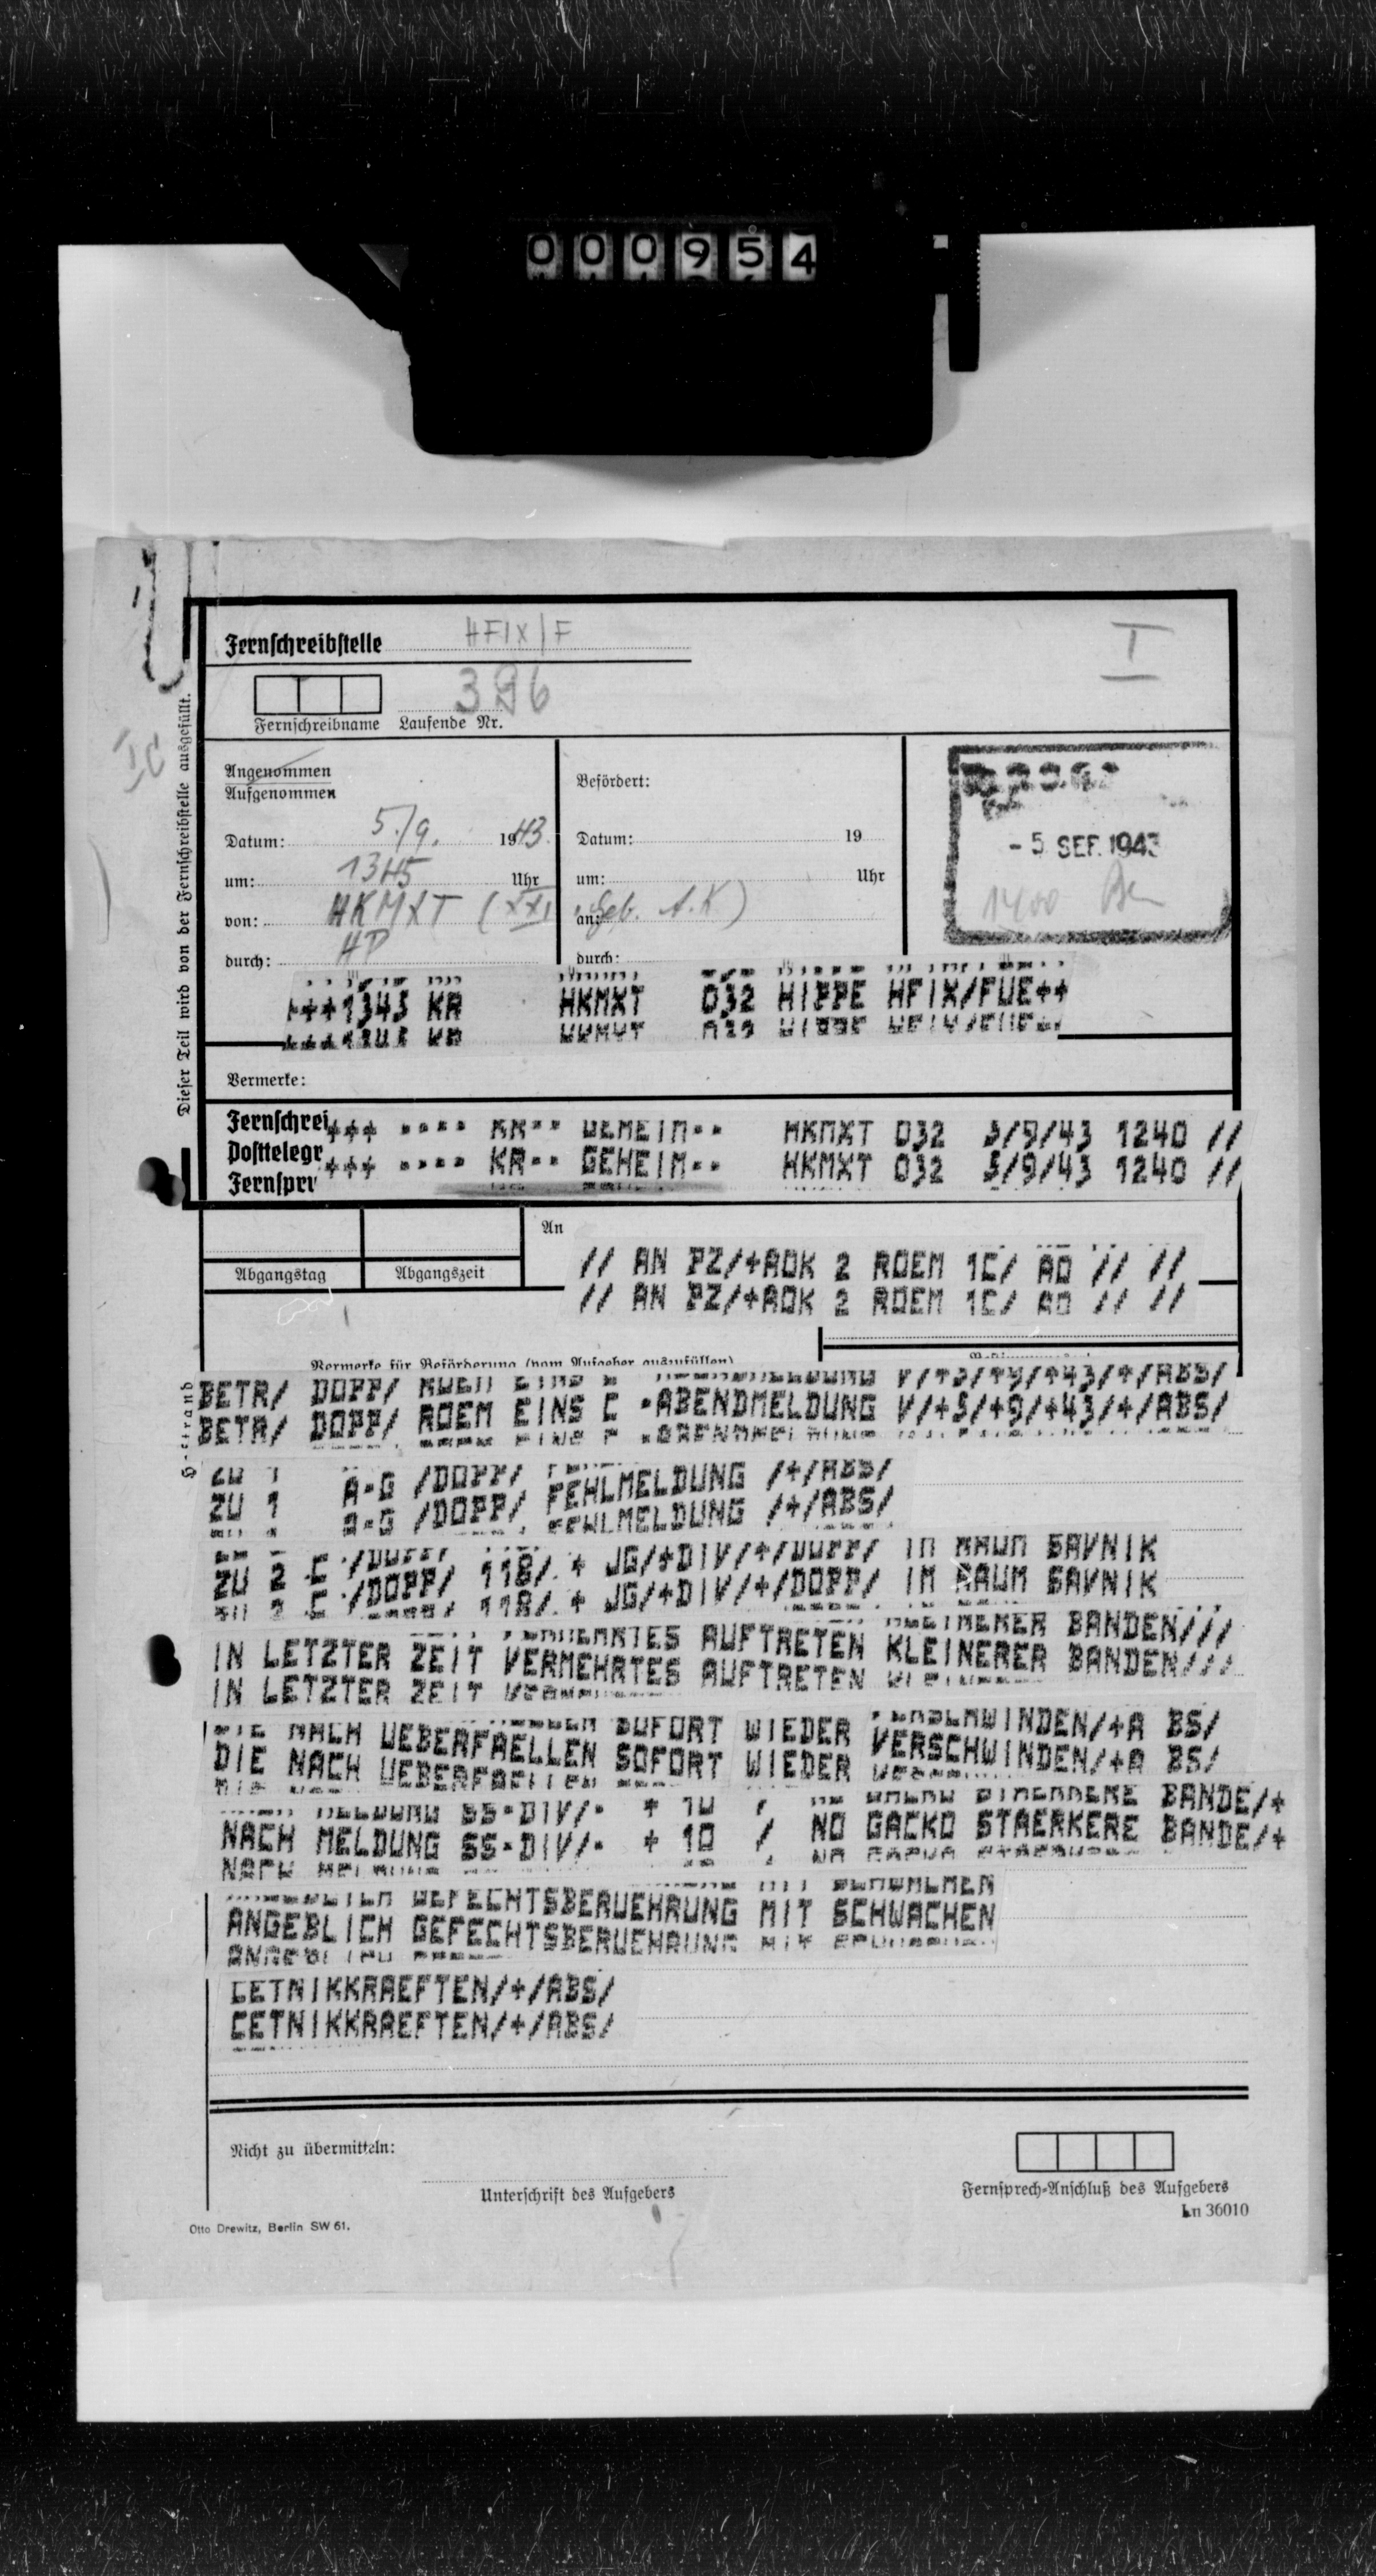 000954
Fernschreibstelle HFIX/F
I
Fernschreibname Laufende Nr. 396
Dieser Teil wird von der Fernschreibstelle ausgefüllt.
Ic
Angenommen
Aufgenommen
Datum: 5./9. 1943
um: 1345 Uhr
von: HKMXT (XXI Geb. A.K)
durch: HP
Befördert:
Datum: 19
um: Uhr
an:
durch:
- 5 SEP. 1943
1400
+++1343 KR HKMXT 032 HIPPE HFIX/FUE++
Vermerke:
Fernschrei
Posttelegr
Fernspr
+++ ---- KR-- GEHEIM-- HKMXT 032 5/9/43 1240 //
Abgangstag Abgangszeit
An
// AN PZ/+AOK 2 ROEM 1C/ AO // //
Vermerke für Beförderung (vom Aufgeber auszufüllen)
BETR/ DOPP/ ROEM EINS C -ABENDMELDUNG V/+5/+9/+43/+/ABS/
ZU 1 A-G /DOPP/ FEHLMELDUNG /+/ABS/
ZU 2 C /DOPP/ 118/. + JG/+DIV/+/DOPP/ IM RAUM SAVNIK
IN LETZTER ZEIT VERMEHRTES AUFTRETEN KLEINERER BANDEN///
DIE NACH UEBERFAELLEN SOFORT WIEDER VERSCHWINDEN/+A BS/
NACH MELDUNG SS-DIV/- + 10 / NO GACKO STAERKERE BANDE/+
ANGEBLICH GEFECHTSBERUEHRUNG MIT SCHWACHEN
CETNIKKRAEFTEN/+/ABS/
Nicht zu übermitteln:
Unterschrift des Aufgebers
Fernsprech-Anschluß des Aufgebers
Ln 36010
Otto Drewitz, Berlin SW 61.